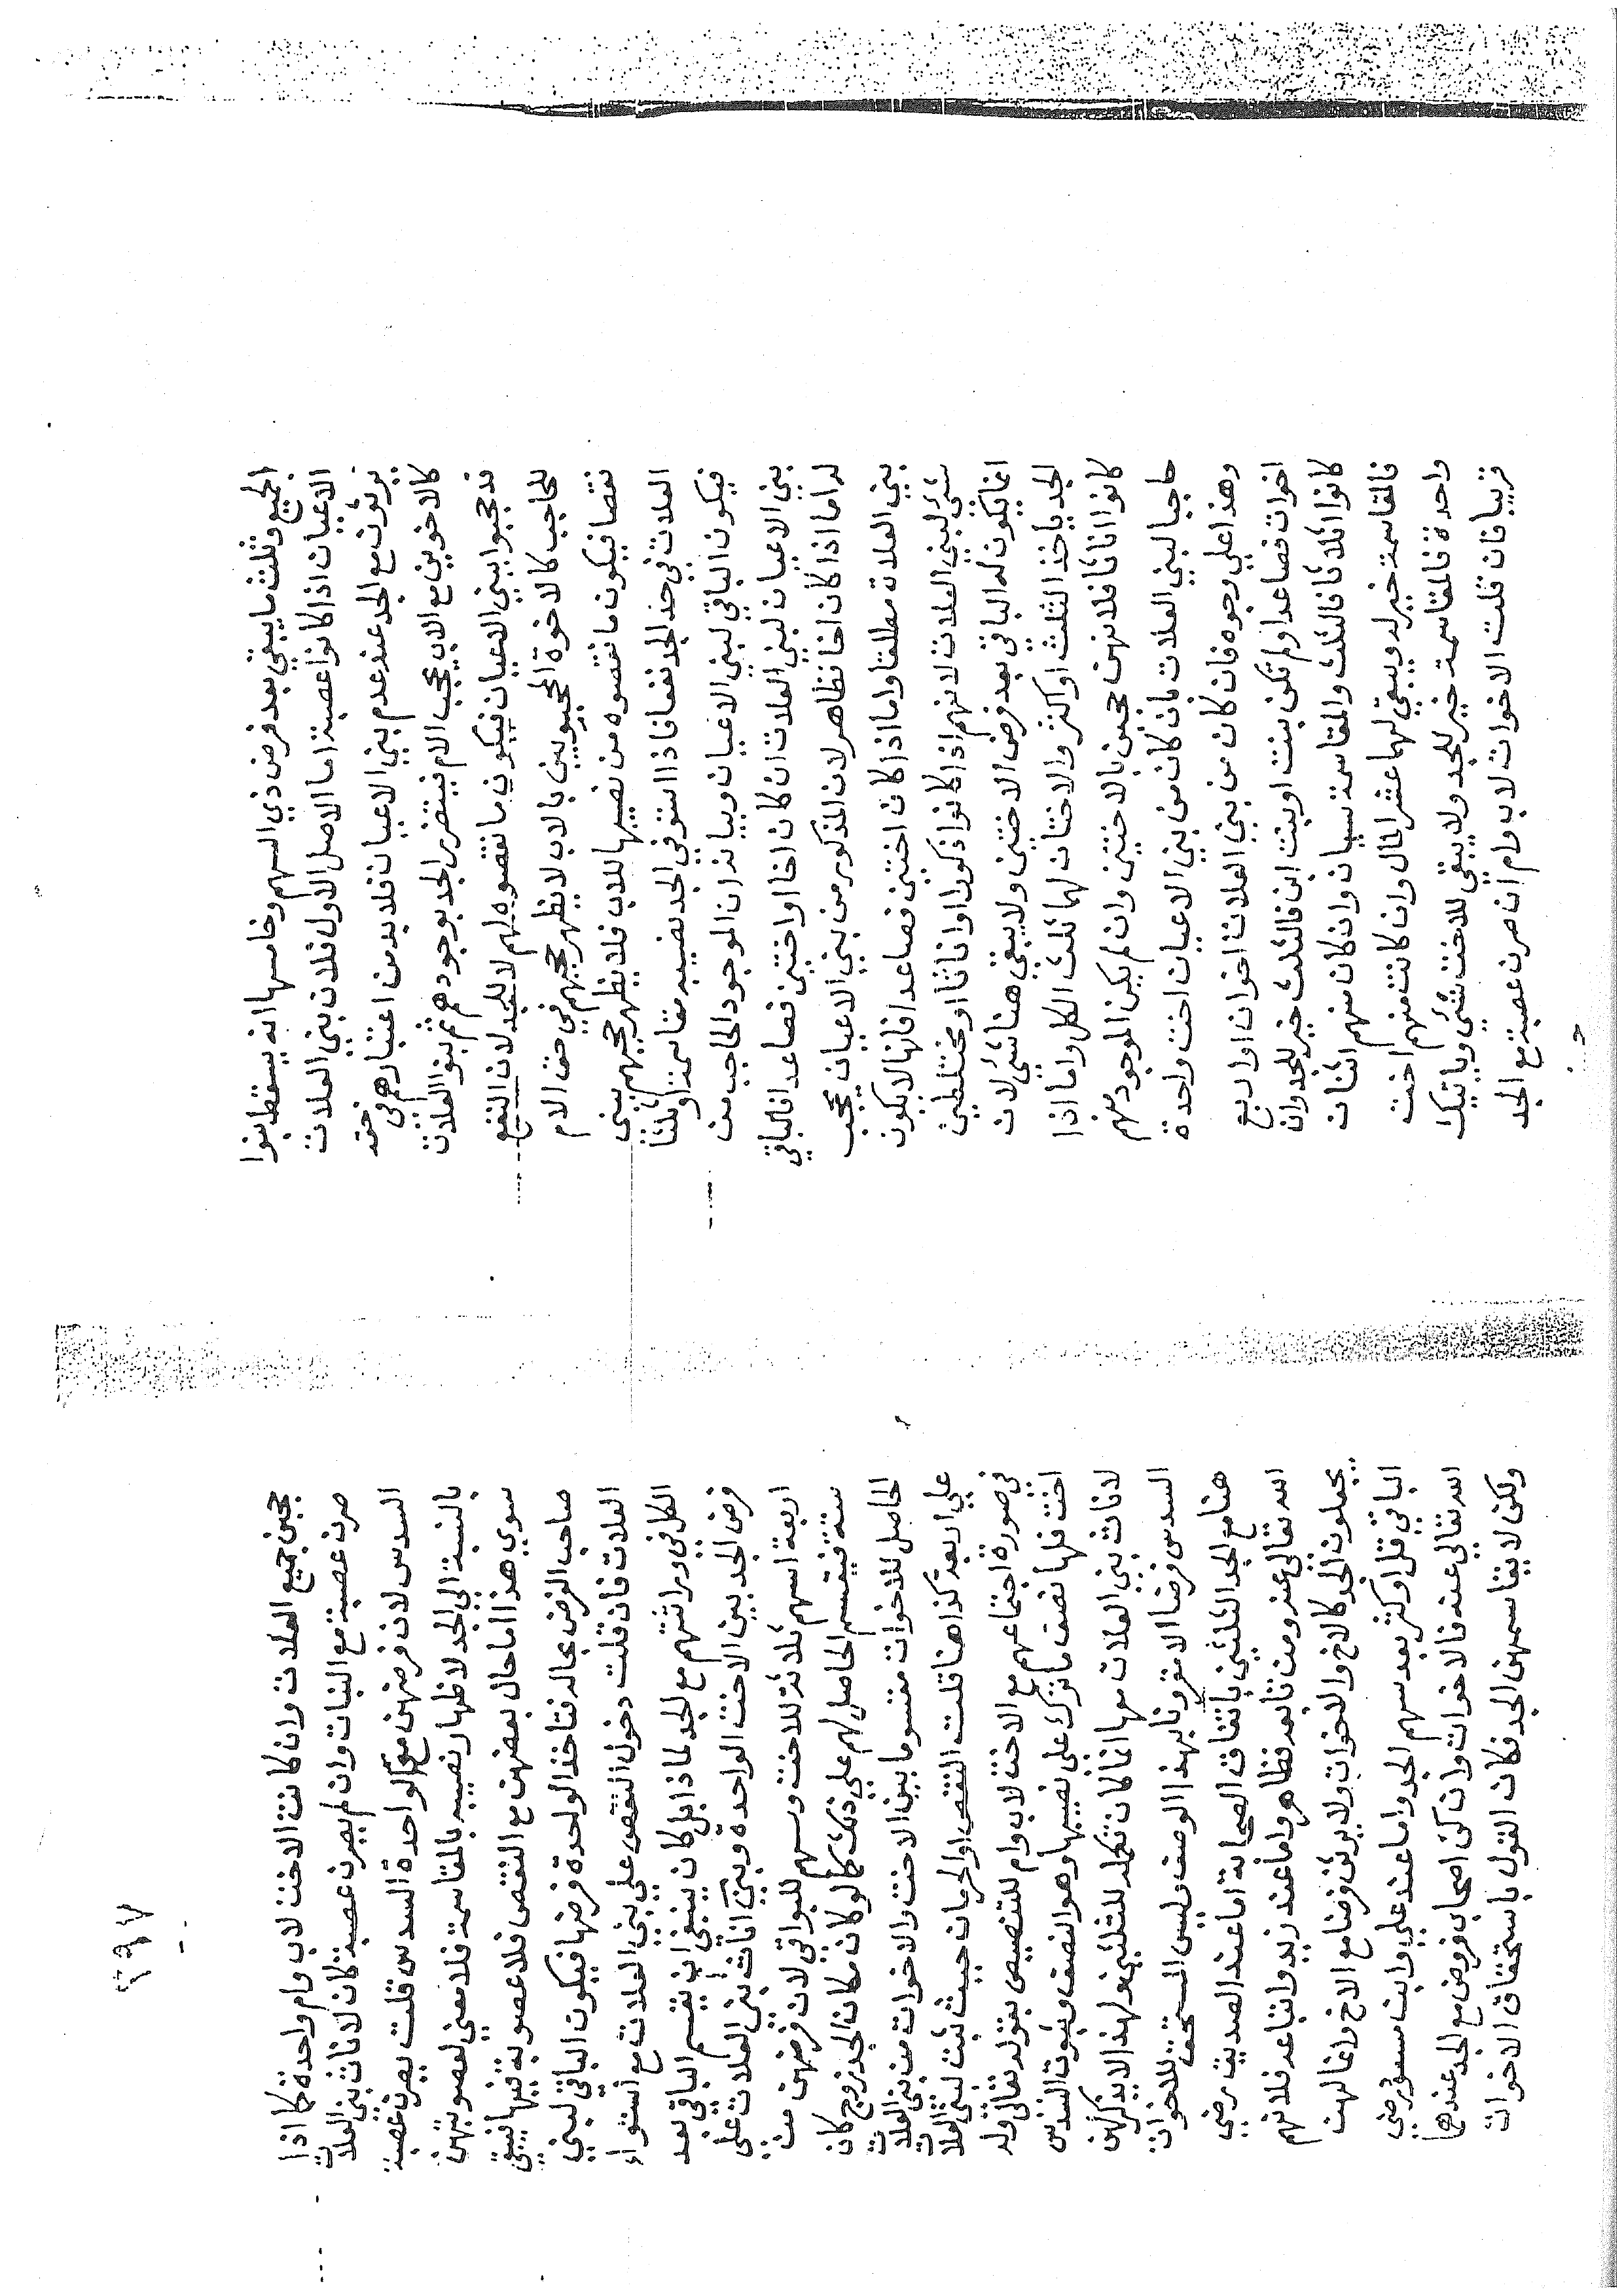 الجميع وثلث ما يبقي بعد فرض ذي السهم وخامسها انه يسقط بنوا
الاعيان اذا كانوا عصبة اما الاصل الاول فلان بني العلات
يرثون مع الجد عند عدم بني الاعيان فلا بد من اعتبارهم في حقه
كالاخوين مع الاب يحجب الام فيتضرر الجد بوجودهم ثم بنوا العلات
قد حجبوا ببني الاعيان فيكون ما نقصوه لهم لا للجد لان النفع
للحاجب كالاخوة المحجوبين بالاب لا يظهر حجبهم في حق الام
نقصا فيكون ما نقصوه من نصيبها للاب فلا يظهر حجبهم ببني
العلات في حق الجد نفعا فاذا استوفي الجد نصيبه مقاسمة او ثلثا
فيكون الباقي لبني الاعيان وبيانه ان الموجود الحاجب من
بني الاعيان لبني العلات ان كان اخا او اختين فصاعدا فالباقي
له اما اذا كان اخا فظاهر لان المذكور من بني الاعيان يحجب
بني العلات مطلقا واما اذا كان اختين فصاعدا فانها لا يكون
شئ لبني العلات لانهم اذا كانوا ذكورا او اناثا او مختلطين
انما يكون له الباقي بعد فرض الاختين ولا يبقي هنا شئ لان
الجد ياخذ الثلث او اكثر والاختان لهما ثلث الكل واما اذا
كانوا اناثا فلانهن حجبن بالاختين وان لم يكن الموجود منهم
حاجبا لبني العلات بان كان من بني الاعيان اخت واحدة
وهذا علي وجوه فان كان من بني العلات اخوان او اربع
اخوات فصاعدا ولم تكن بنت او بنت ابن فالثلث خير للجد وان
كانوا ثلاثا فالثلث والمقاسمة سيان وان كان منهم اثنات
فالمقاسمة خير له ويبقي لهما عشر المال وان كانت منهم اخت
واحدة فالمقاسمة خير للجد ولا يبقي للاخت شئ وياتيك
قريبا فان قلت الاخوات لاب وام ان صرن عصبة مع الجد
يحجبن جميع العلات وان كانت الاخت لاب وام واحدة كما اذا
صرن عصبة مع البنات وان لم يصرن عصبة كان لاناث بني العلات
السدس لان فرضهن مع الواحدة السدس قلت يصرن عصبة
بالنسبة الي الجد لاظهار نصيبه بالمقاسمة فلا معني لعصوبتهن
سوي هذا اما حال بعضهن مع النقص فلا عصوبة فيها فيبقي
صاحب الفرض بحاله فتاخذ الواحدة فرضها فيكون الباقي لبني
العلات فان قلت دخول النقص علي بني العلات مع استواء
الكل في وراثتهم مع الجد لماذا بل كان ينبغي ان يقسم الباقي بعد
فرض الجد بين الاخت الواحدة وبين اناث بني العلات علي
اربعة اسهم ثلاثة للاخت وسهم للبواقي لان فرضهن من
ستة فيقسم الحاصل لهم علي ذلك كما لو كان مكان الجد زوج كان
الحاصل للاخوات مقسوما بين الاخت والاخوات من بني العلات
علي اربعة كذا هنا قلت النقص او الحرمان حيث ثبت لبني العلات
في صورة اجتماعهم مع الاخت لاب وام للتنصيص بقوله تعالي وله
اخت فلها نصف ما ترك علي نصيبها وهو النصف وثبوت السدس
لاناث بني العلات معها انما كان تكملة للثلثين ولهذا لا يذكرن
السدس فرضا الا مقرونا بهذا الوصف وليس المستحق للاخوات
هنا مع الجد الثلثين باتفاق الصحابة اما عند الصديق رضي
الله تعالي عنه ومن تابعه فظاهر واما عند زيد واتباعه فلانهم
يجعلون الجد كالاخ والاخوات ولا يرثن فرضا مع الاخ وانما لهن
الباقي قل او كثر بعد سهم الجد واما عند علي وابن مسعود رضي
الله تعالي عنه فالاخوات وان كن اصحاب فروض مع الجد عندهما
ولكن لا يقاسمهن الجد فكان القول باستحقاق الاخوات